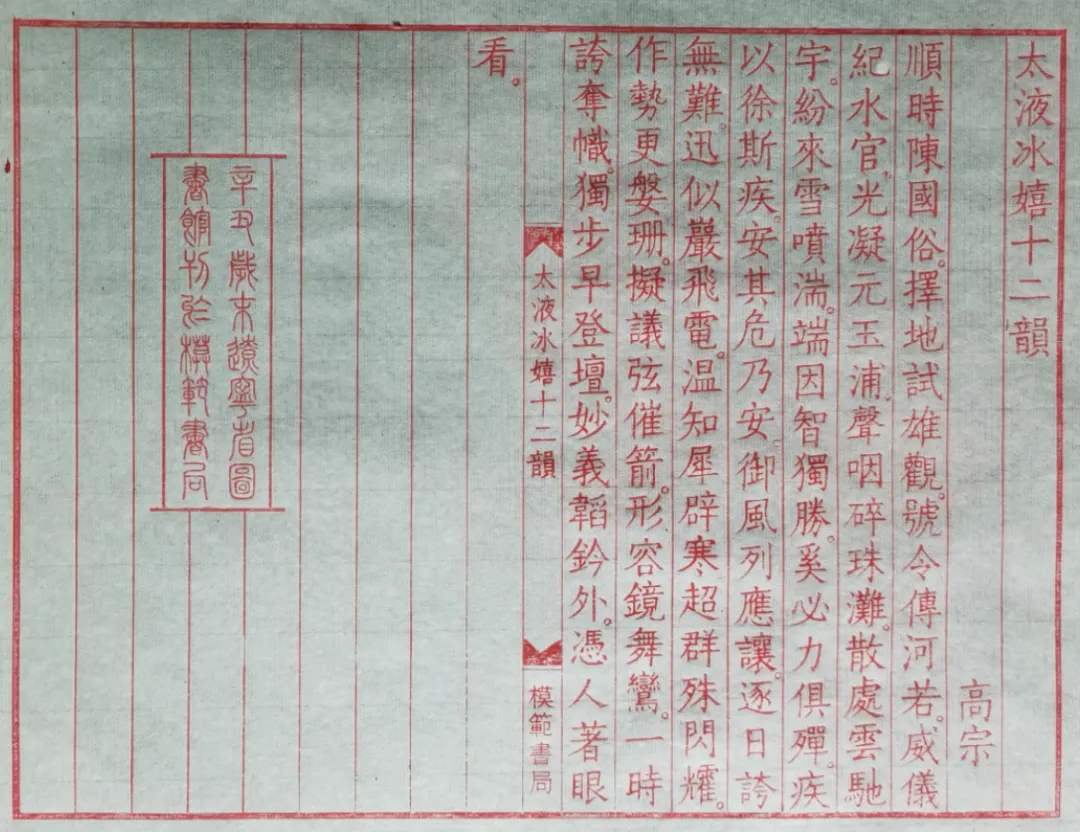 太液冰嬉十二韻
高宗
順時陳國俗。擇地試雄觀。號令傳河若。威儀
紀水官。光凝元玉浦。聲咽碎珠灘。散處雲馳
宇。紛來雪噴湍。端因智獨勝。奚必力俱殫。疾
以徐斯疾。安其危乃安。御風列應讓。逐日誇
無難。迅似巖飛電。温知犀辟寒。超群殊閃㸌。
作勢更媻珊。擬議弦催箭。形容鏡舞鸞。一時
誇奪幟。獨步早登壇。妙義韜鈐外。憑人著眼
看。
太液冰嬉十二韻
模範書局
辛丑歲末遼寧省圖
書館刊於模範書局